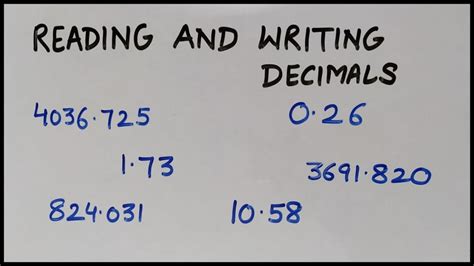 READING AND WRITING
DECIMALS
4036.725 0.26
1.73 3691.820
824.031 10.58